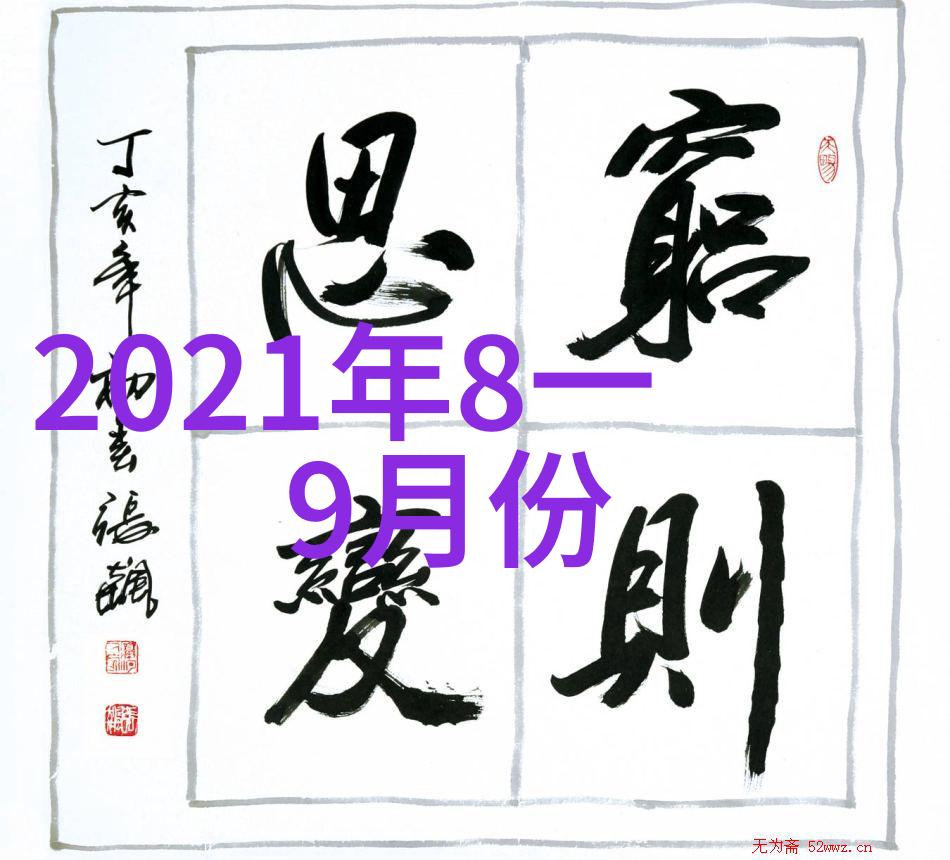 窮則
思變
丁亥年初春張飆
2021年8一
9月份
无为斋 52wwz.cn